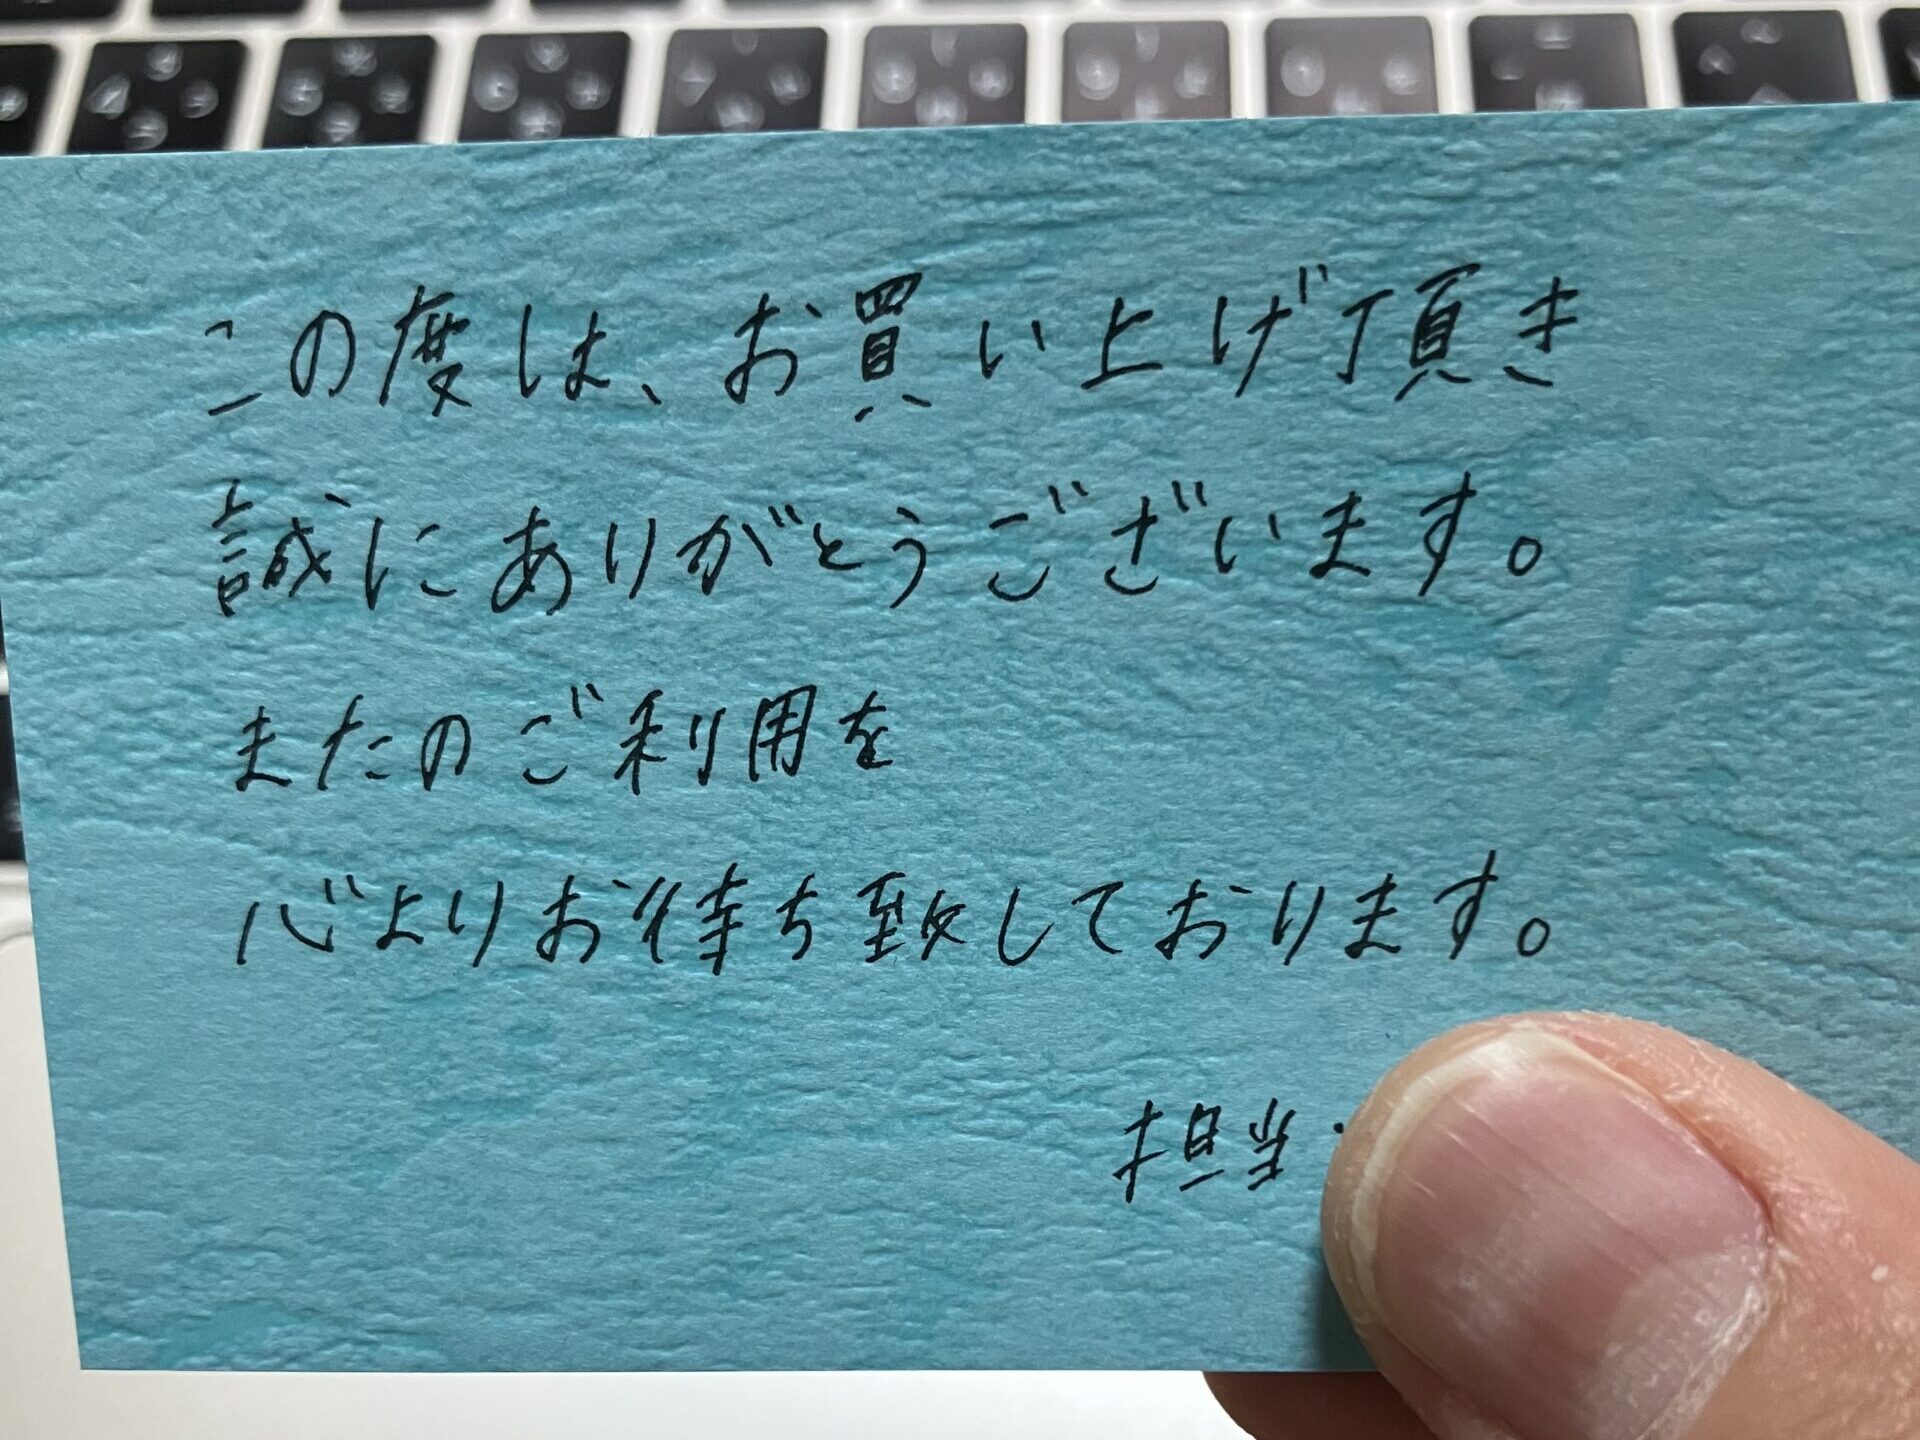 この度は、お買い上げ頂き
誠にありがとうございます。
またのご利用を
心よりお待ち致しております。
担当